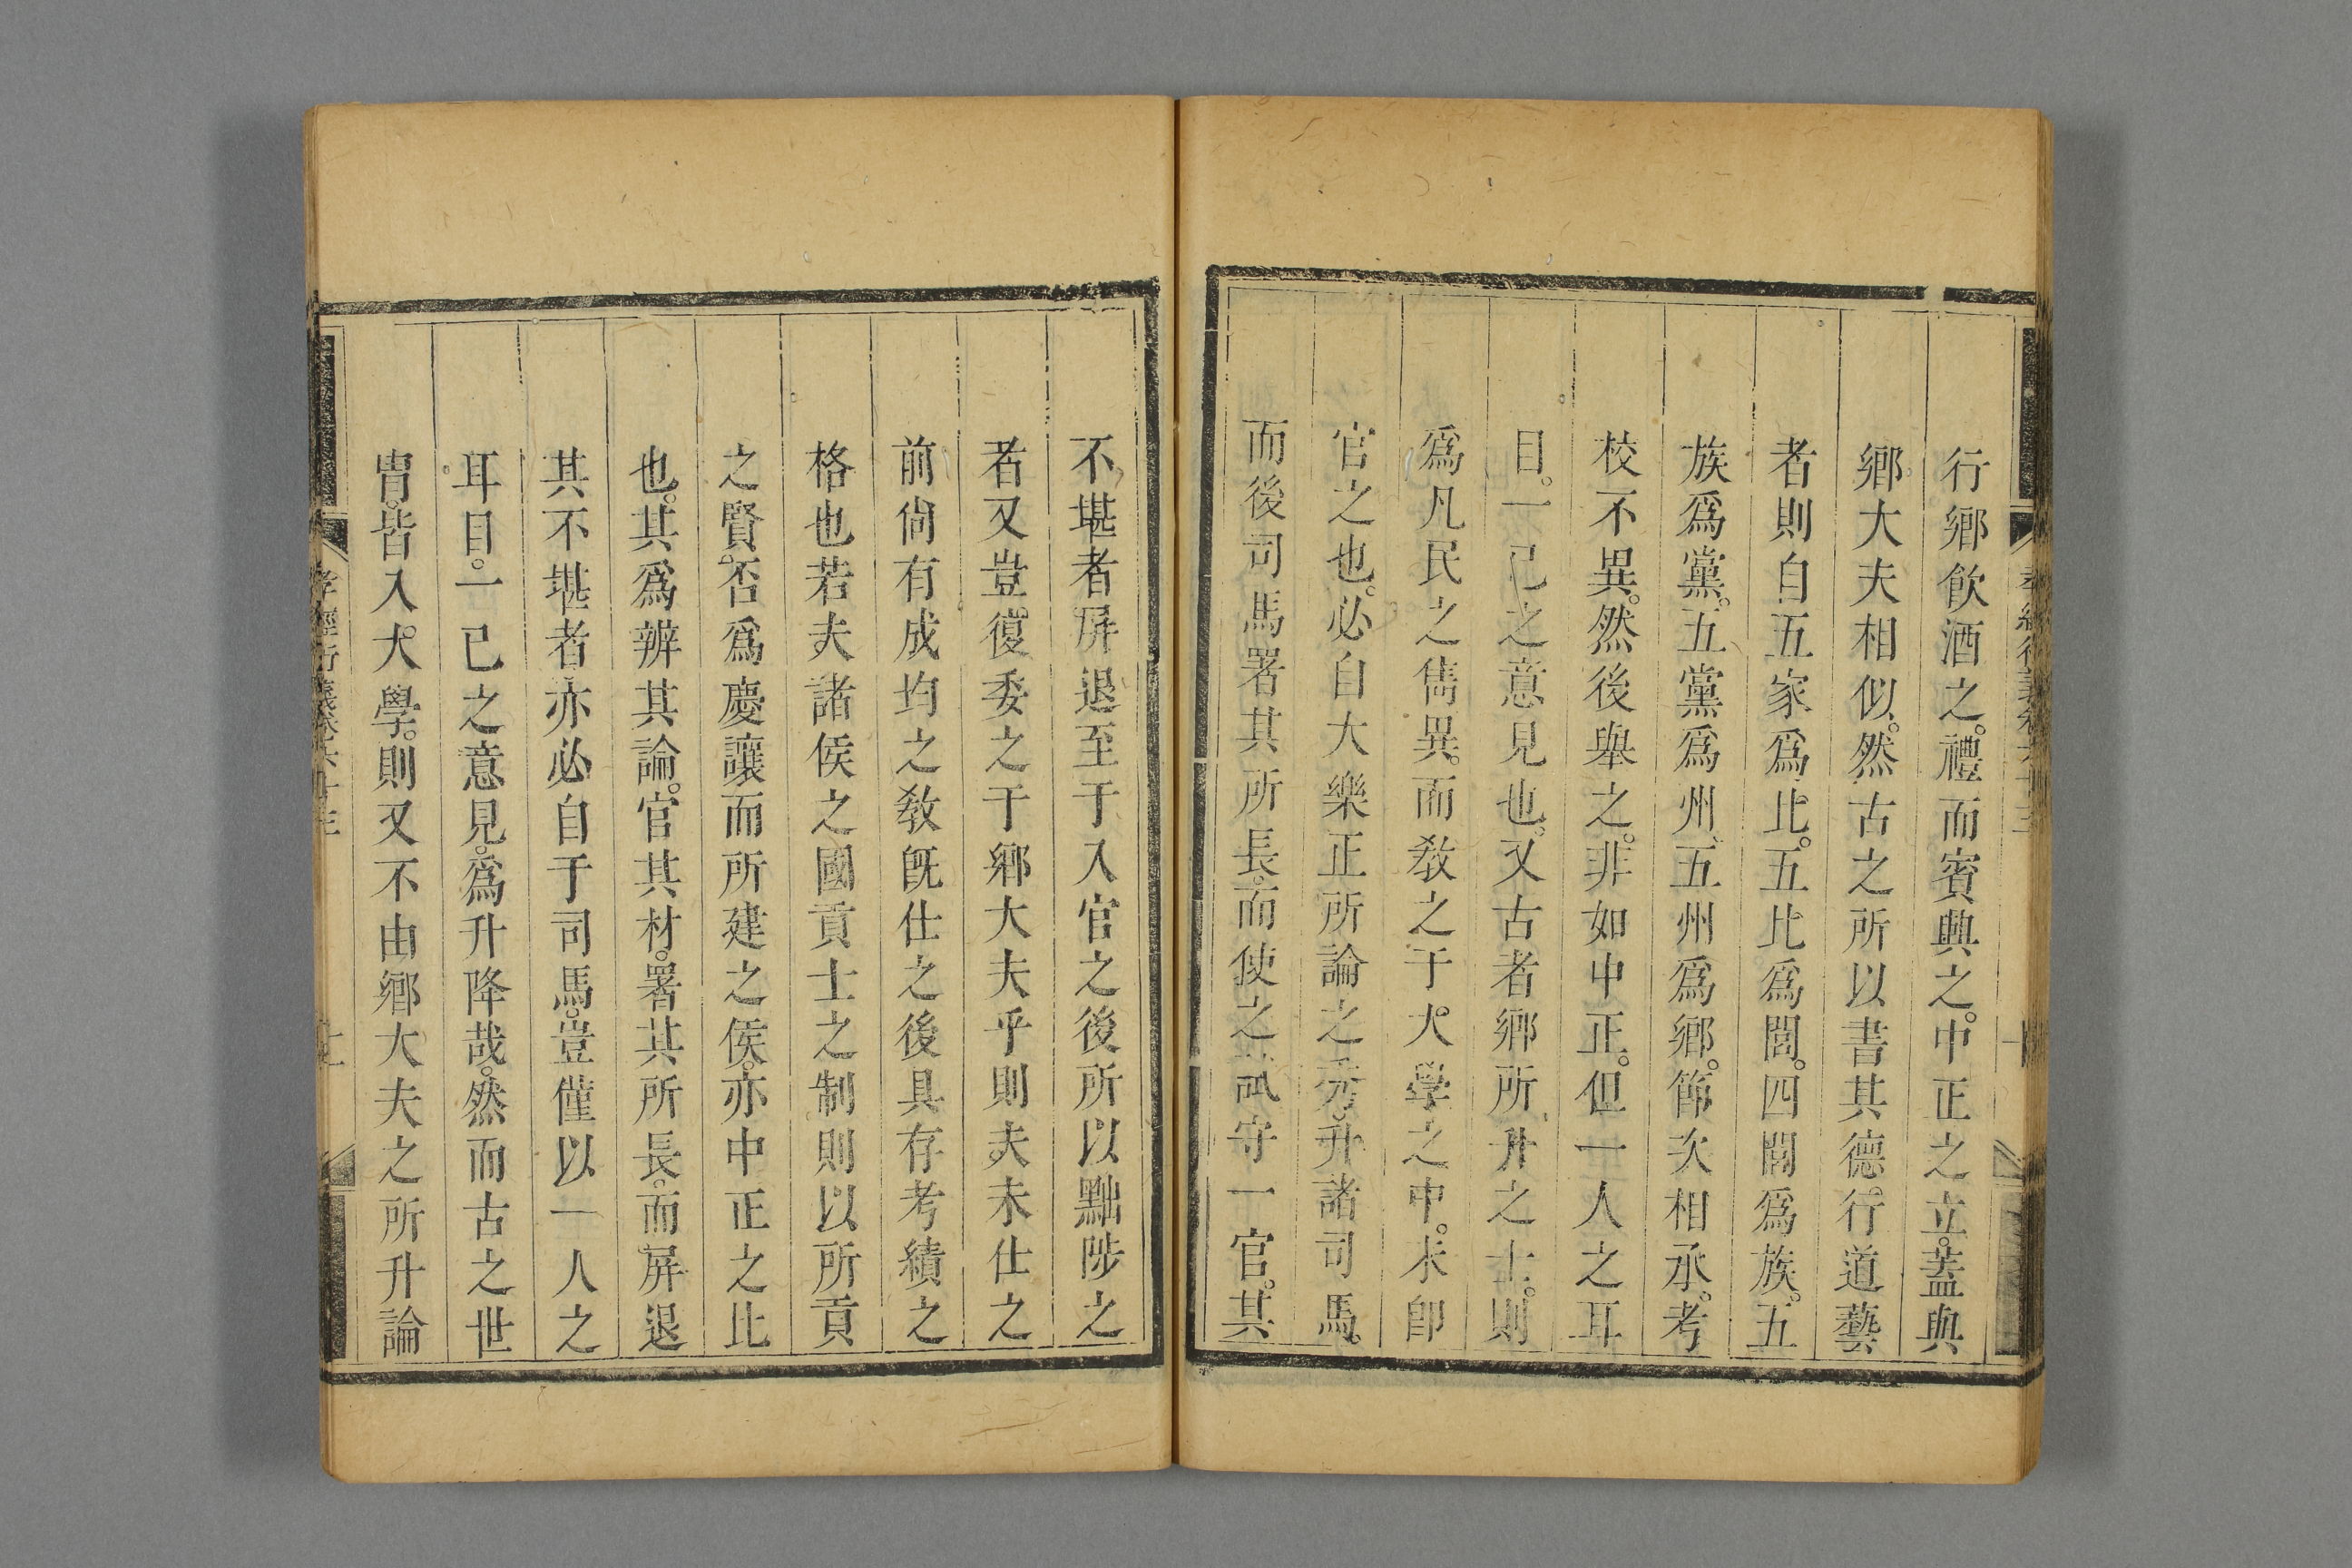 行鄉飲酒之。禮而賓興之。中正之立。蓋與
鄉大夫相似。然古之所以書其德。行道藝
者則自五家爲比。五比爲閭。四閭爲族。五
族爲黨。五黨爲州、五州爲鄉。節次相承。考
校不異。然後舉之。非如中正。但一人之耳
目。一己之意見也。又古者鄉所升之士。則
爲凡民之雋異。而敎之于大學之中。未卽
官之也。必自大樂正所論之秀。升諸司馬。
而後司馬署其所長。而使之試守一官。其
不堪者屏退至于入官之後所以黜陟之
者又豈。復委之于鄉大夫乎則夫未仕之
前尙有成均之敎旣仕之後具存考績之
格也若夫諸侯之國貢士之制則以所貢
之賢。否爲慶讓而所建之侯。亦中正之比
也。其爲辨其論。官其材。署其所長。而屏退
其不堪者亦必自于司馬。豈僅以一人之
耳目。一己之意見。爲升降哉。然而古之世
胄。皆入大學。則又不由鄉大夫之所升論
孝經衍義卷六十三